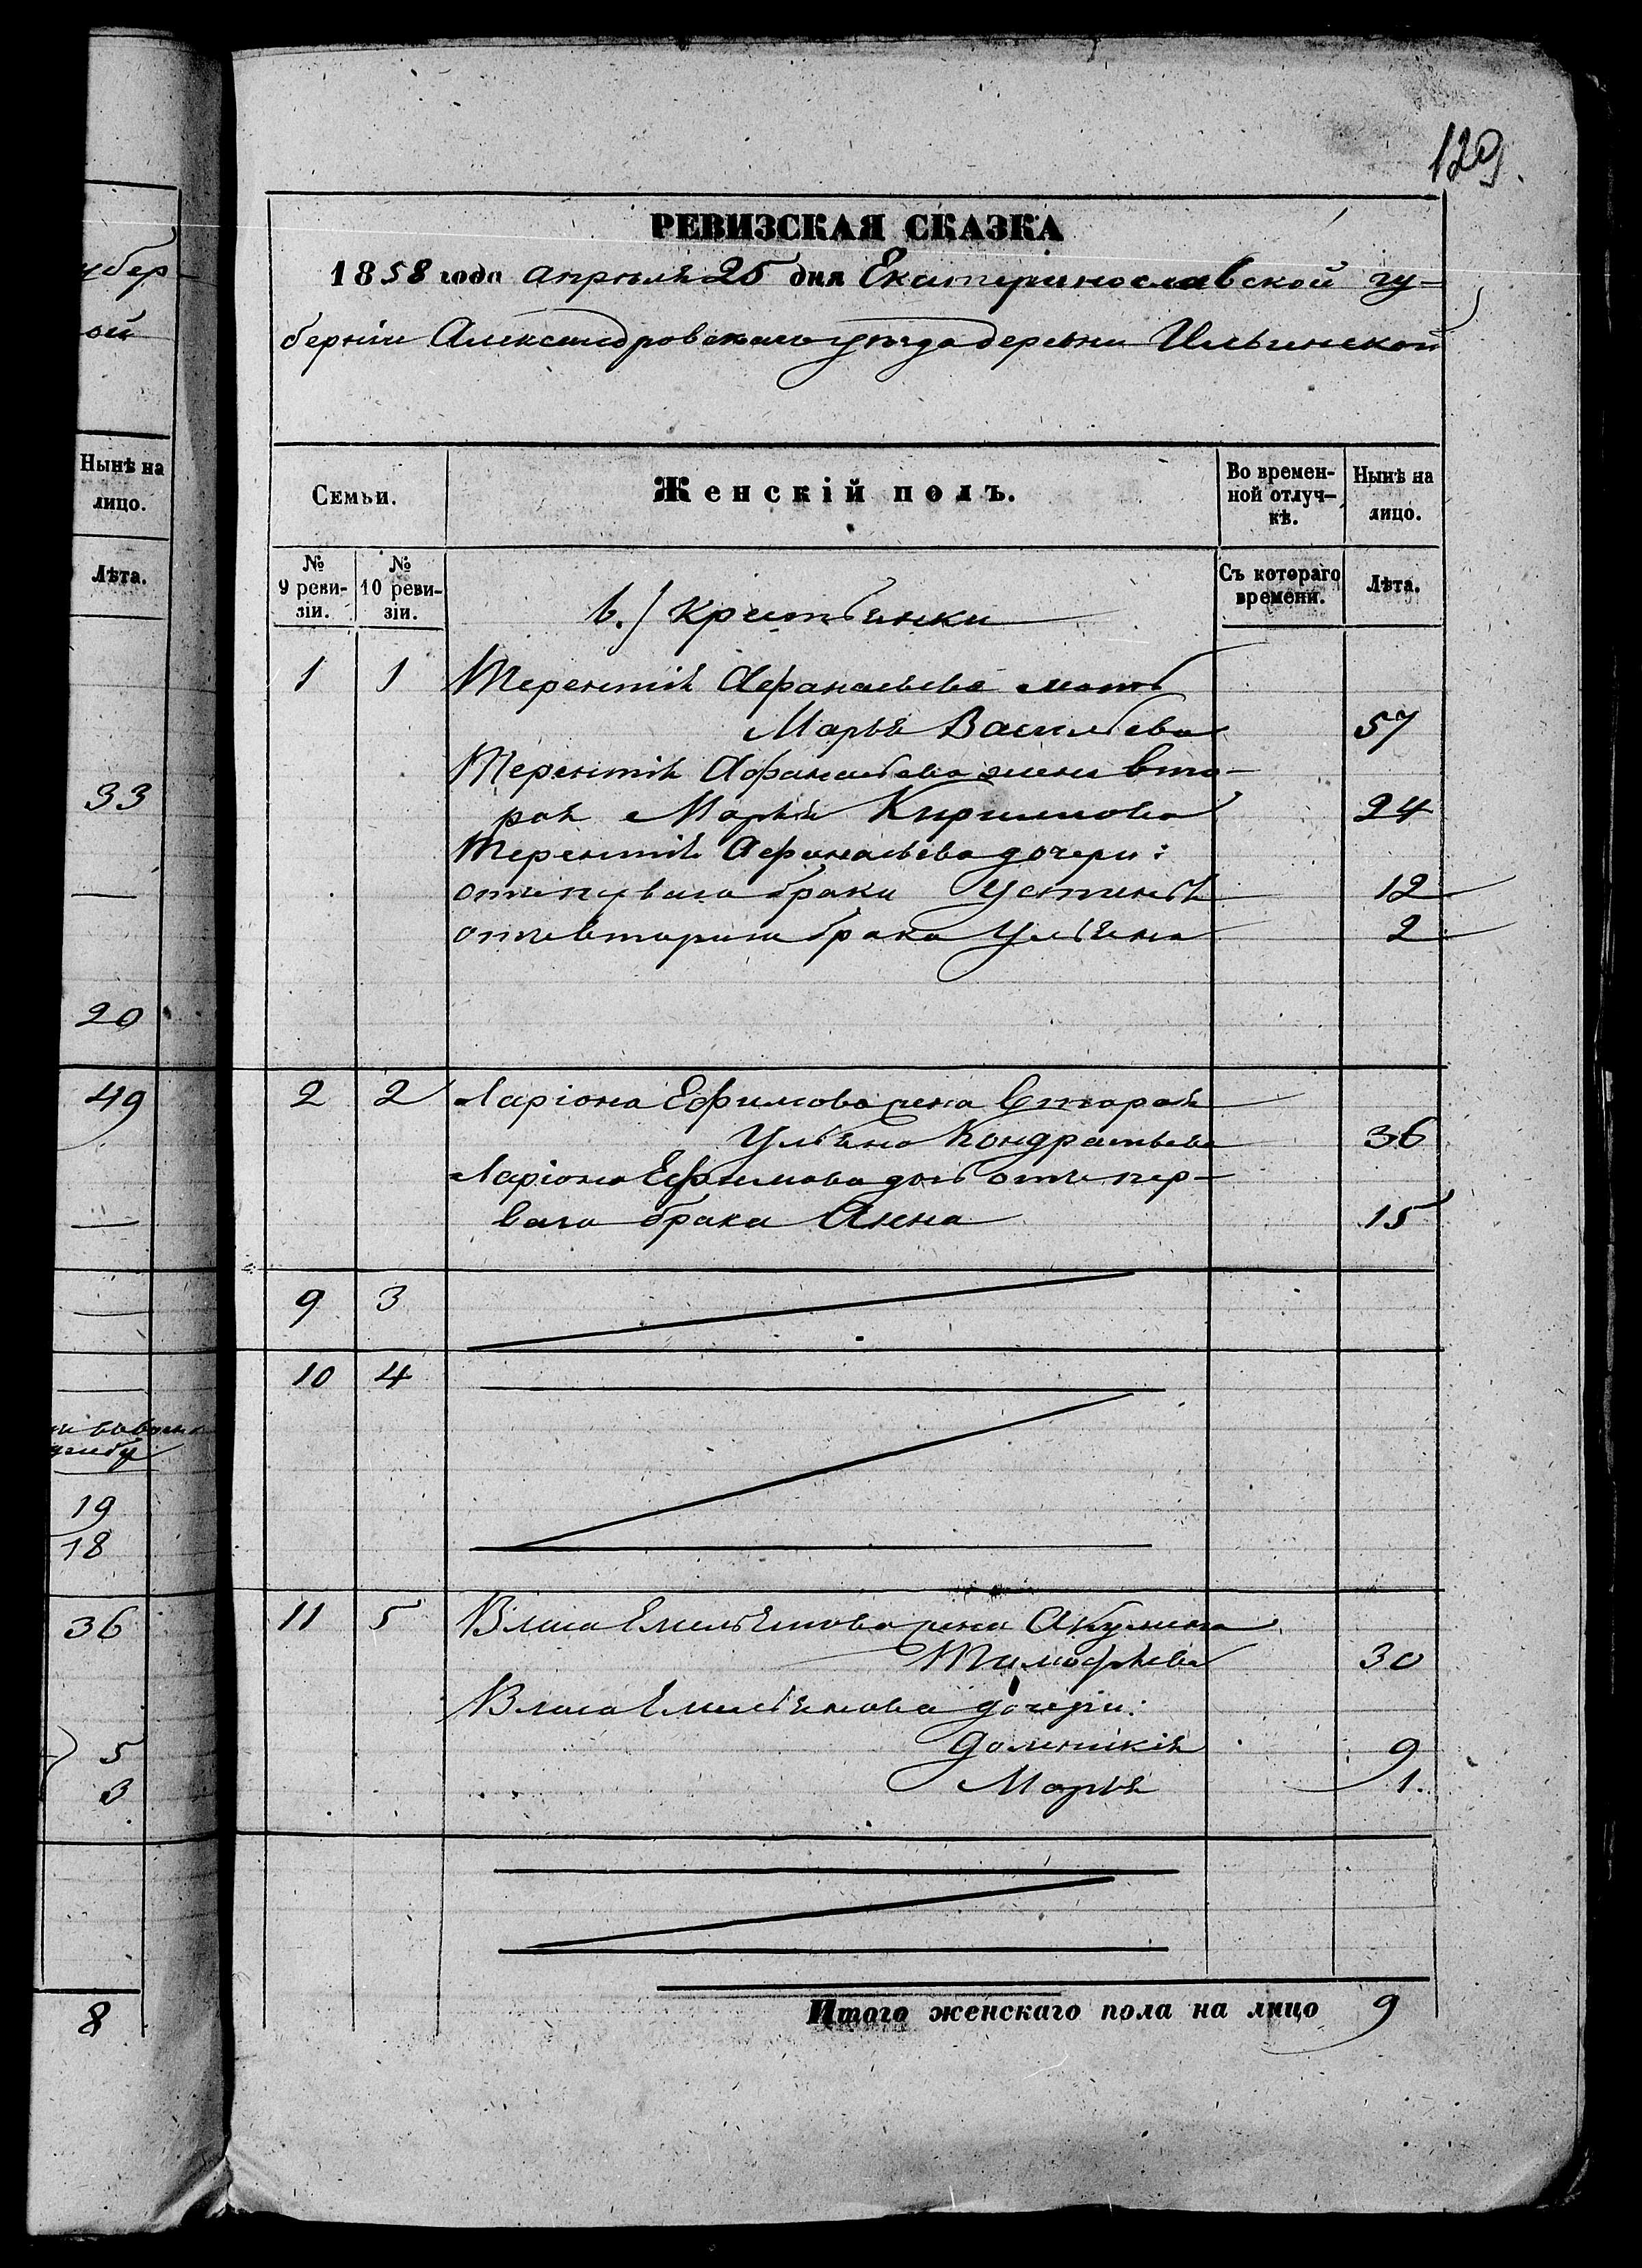 129.
убер-
ой
Нынѣ на
лицо.
Лѣта.
33
20
49
19
18
36
5
3
8
РЕВИЗСКАЯ СКАЗКА
1858 года апрѣля 25 дня Екатеринославской гу-
берніи Александровскаго уѣзда деревни Ильинской
Семьи.
Женскій полъ.
Во времен-
ной отлуч-
кѣ.
Нынѣ на
лицо.
№
9 реви-
зіи.
№
10 реви-
зіи.
Съ котораго
времени.
Лѣта.
в.) крестьянки
1 1 Терентія Афанасьева мать
Марья Васильева 57
Терентія Афанасьева жена вто-
рая Марья Кирилова 24
Терентія Афанасьева дочери:
отъ перваго брака Устинья 12
отъ втораго брака Ульяна 2
2 2 Ларіона Ефимова жена вторая
Ульяна Кондратьева 36
Ларіона Ефимова дочь отъ пер-
ваго брака Анна 15
9 3
10 4
11 5 Власа Емельянова жена Акулина
Тимофѣева 30
Власа Емельянова дочери:
Доминикія 9
Марья 1.
Итого женскаго пола на лицо 9